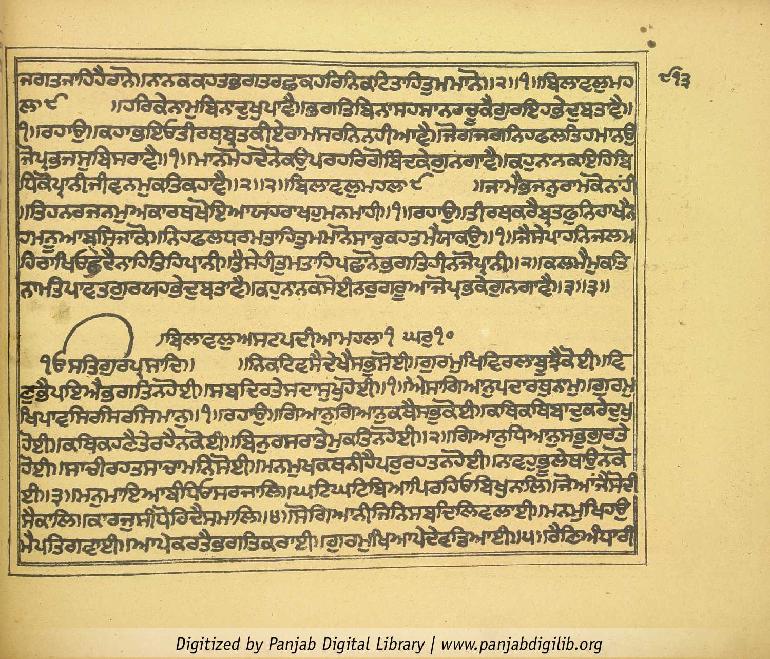 ੯੧੩
ਜਗਤਜਾਹਿਹੈਰਾਨੋ॥ਨਾਨਕਕਹਤਭਗਤਰਛਕਹਰਿਨਿਕਟਿਤਾਹਿਤੁਮਮਾਨੋ॥੨॥੧॥ਬਿਲਾਵਲੁਮਹ
ਲਾ੯ ॥ਹਰਿਕੇਨਾਮਬਿਨਾਦੁਖੁਪਾਵੈ॥ਭਗਤਿਬਿਨਾਸਹਸਾਨਹਚੂਕੈਗੁਰਇਹਭੇਦੁਬਤਾਵੈ॥
੧॥ਰਹਾਉ॥ਕਹਾਭਇਓਤੀਰਥਬ੍ਰਤਕੀਏਰਾਮਸਰਨਿਨਹੀਆਵੈ॥ਜੋਗਜਗਨਿਹਫਲਤਿਹਮਾਨਉ
ਜੋਪ੍ਰਭਜਸੁਬਿਸਰਾਵੈ॥੧॥ਮਾਨਮੋਹਦੋਨੋਕਉਪਰਹਰਿਗੋਬਿੰਦਕੇਗੁਨਗਾਵੈ॥ਕਹੁਨਾਨਕਇਹਬਿ
ਧਿਕੋਪ੍ਰਾਨੀਜੀਵਨਮੁਕਤਿਕਹਾਵੈ॥੨॥੨॥ਬਿਲਾਵਲੁਮਹਲਾ੯ ॥ਜਾਮੈਭਜਨੁਰਾਮਕੋਨਾਹੀ
॥ਤਿਹਨਰਜਨਮੁਅਕਾਰਥਖੋਇਆਯਹਰਾਖਹੁਮਨਮਾਹੀ॥੧॥ਰਹਾਉ॥ਤੀਰਥਕਰੈਬ੍ਰਤਫੁਨਿਰਾਖੈਨ
ਹਮਨੂਆਬਸਿਜਾਕੋ॥ਨਿਹਫਲਧਰਮਤਾਹਿਤੁਮਮਾਨੋਸਾਚੁਕਹਤਮੈਯਾਕਉ॥੧॥ਜੈਸੇਪਾਹਨਿਜਲਮ
ਹਿਰਾਖਿਓਭੇਦੈਨਾਹਿਤਿਹਿਪਾਨੀ॥ਤੈਸੇਹੀਤੁਮਤਾਹਿਪਛਾਨੋਭਗਤਿਹੀਨਜੋਪ੍ਰਾਨੀ॥੨॥ਕਲਮੈਮੁਕਤਿ
ਨਾਮਤੇਪਾਵਤਗੁਰਯਹਭੇਦੁਬਤਾਵੈ॥ਕਹੁਨਾਨਕਸੋਈਨਰੁਗਰੂਆਜੋਪ੍ਰਭਕੇਗੁਨਗਾਵੈ॥੩॥੩॥
ਬਿਲਾਵਲੁਅਸਟਪਦੀਆਮਹਲਾ੧ ਘਰੁ੧੦
੧ਓਸਤਿਗੁਰਪ੍ਰਸਾਦਿ॥ ॥ਨਿਕਟਿਵਸੈਦੇਖੈਸਭੁਸੋਈ॥ਗੁਰਮੁਖਿਵਿਰਲਾਬੂਝੈਕੋਈ॥ਵਿ
ਣੁਭੈਪਇਐਭਗਤਿਨਹੋਈ॥ਸਬਦਿਰਤੇਸਦਾਸੁਖੁਹੋਈ॥੧॥ਐਸਾਗਿਆਨੁਪਦਾਰਥੁਨਾਮੁ॥ਗੁਰਮੁ
ਖਿਪਾਵਸਿਰਸਿਰਸਿਮਾਨੁ॥੧॥ਰਹਾਉ॥ਗਿਆਨੁਗਿਆਨੁਕਥੈਸਭੁਕੋਈ॥ਕਥਿਕਥਿਬਾਦੁਕਰੇਦੁਖੁ
ਹੋਈ॥ਕਥਿਕਹਣੈਤੇਰਹੈਨਕੋਈ॥ਬਿਨੁਰਸਰਾਤੇਮੁਕਤਿਨਹੋਈ॥੨॥ਗਿਆਨੁਧਿਆਨੁਸਭੁਗੁਰਤੇ
ਹੋਈ॥ਸਾਚੀਰਹਤਸਾਚਾਮਨਿਸੋਈ॥ਮਨਮੁਖਕਥਨੀਹੈਪਰੁਰਹਤਨਹੋਈ॥ਨਾਵਹੁਭੂਲੇਥਾਉਨਕੋ
ਈ॥੩॥ਮਨੁਮਾਇਆਬੰਧਿਓਸਰਜਾਲਿ॥ਘਟਿਘਟਿਬਿਆਪਿਰਹਿਓਬਿਖੁਨਾਲਿ॥ਜੋਆਂਜੈਸੋਦੀ
ਸੈਕਾਲਿ॥ਕਾਰਜੁਸੀਧੋਰਿਦੈਸਮਾਲਿ॥੪॥ਸੋਗਿਆਨੀਜਿਨਿਸਬਦਿਲਿਵਲਾਈ॥ਮਨਮੁਖਿਹਉ
ਮੈਪਤਿਗਵਾਈ॥ਆਪੇਕਰਤੈਭਗਤਿਕਰਾਈ॥ਗੁਰਮੁਖਿਆਪੇਦੇਵਡਿਆਈ॥੫॥ਰੈਣਿਅੰਧਾਰੀ
Digitized by Panjab Digital Library | www.panjabdigilib.org